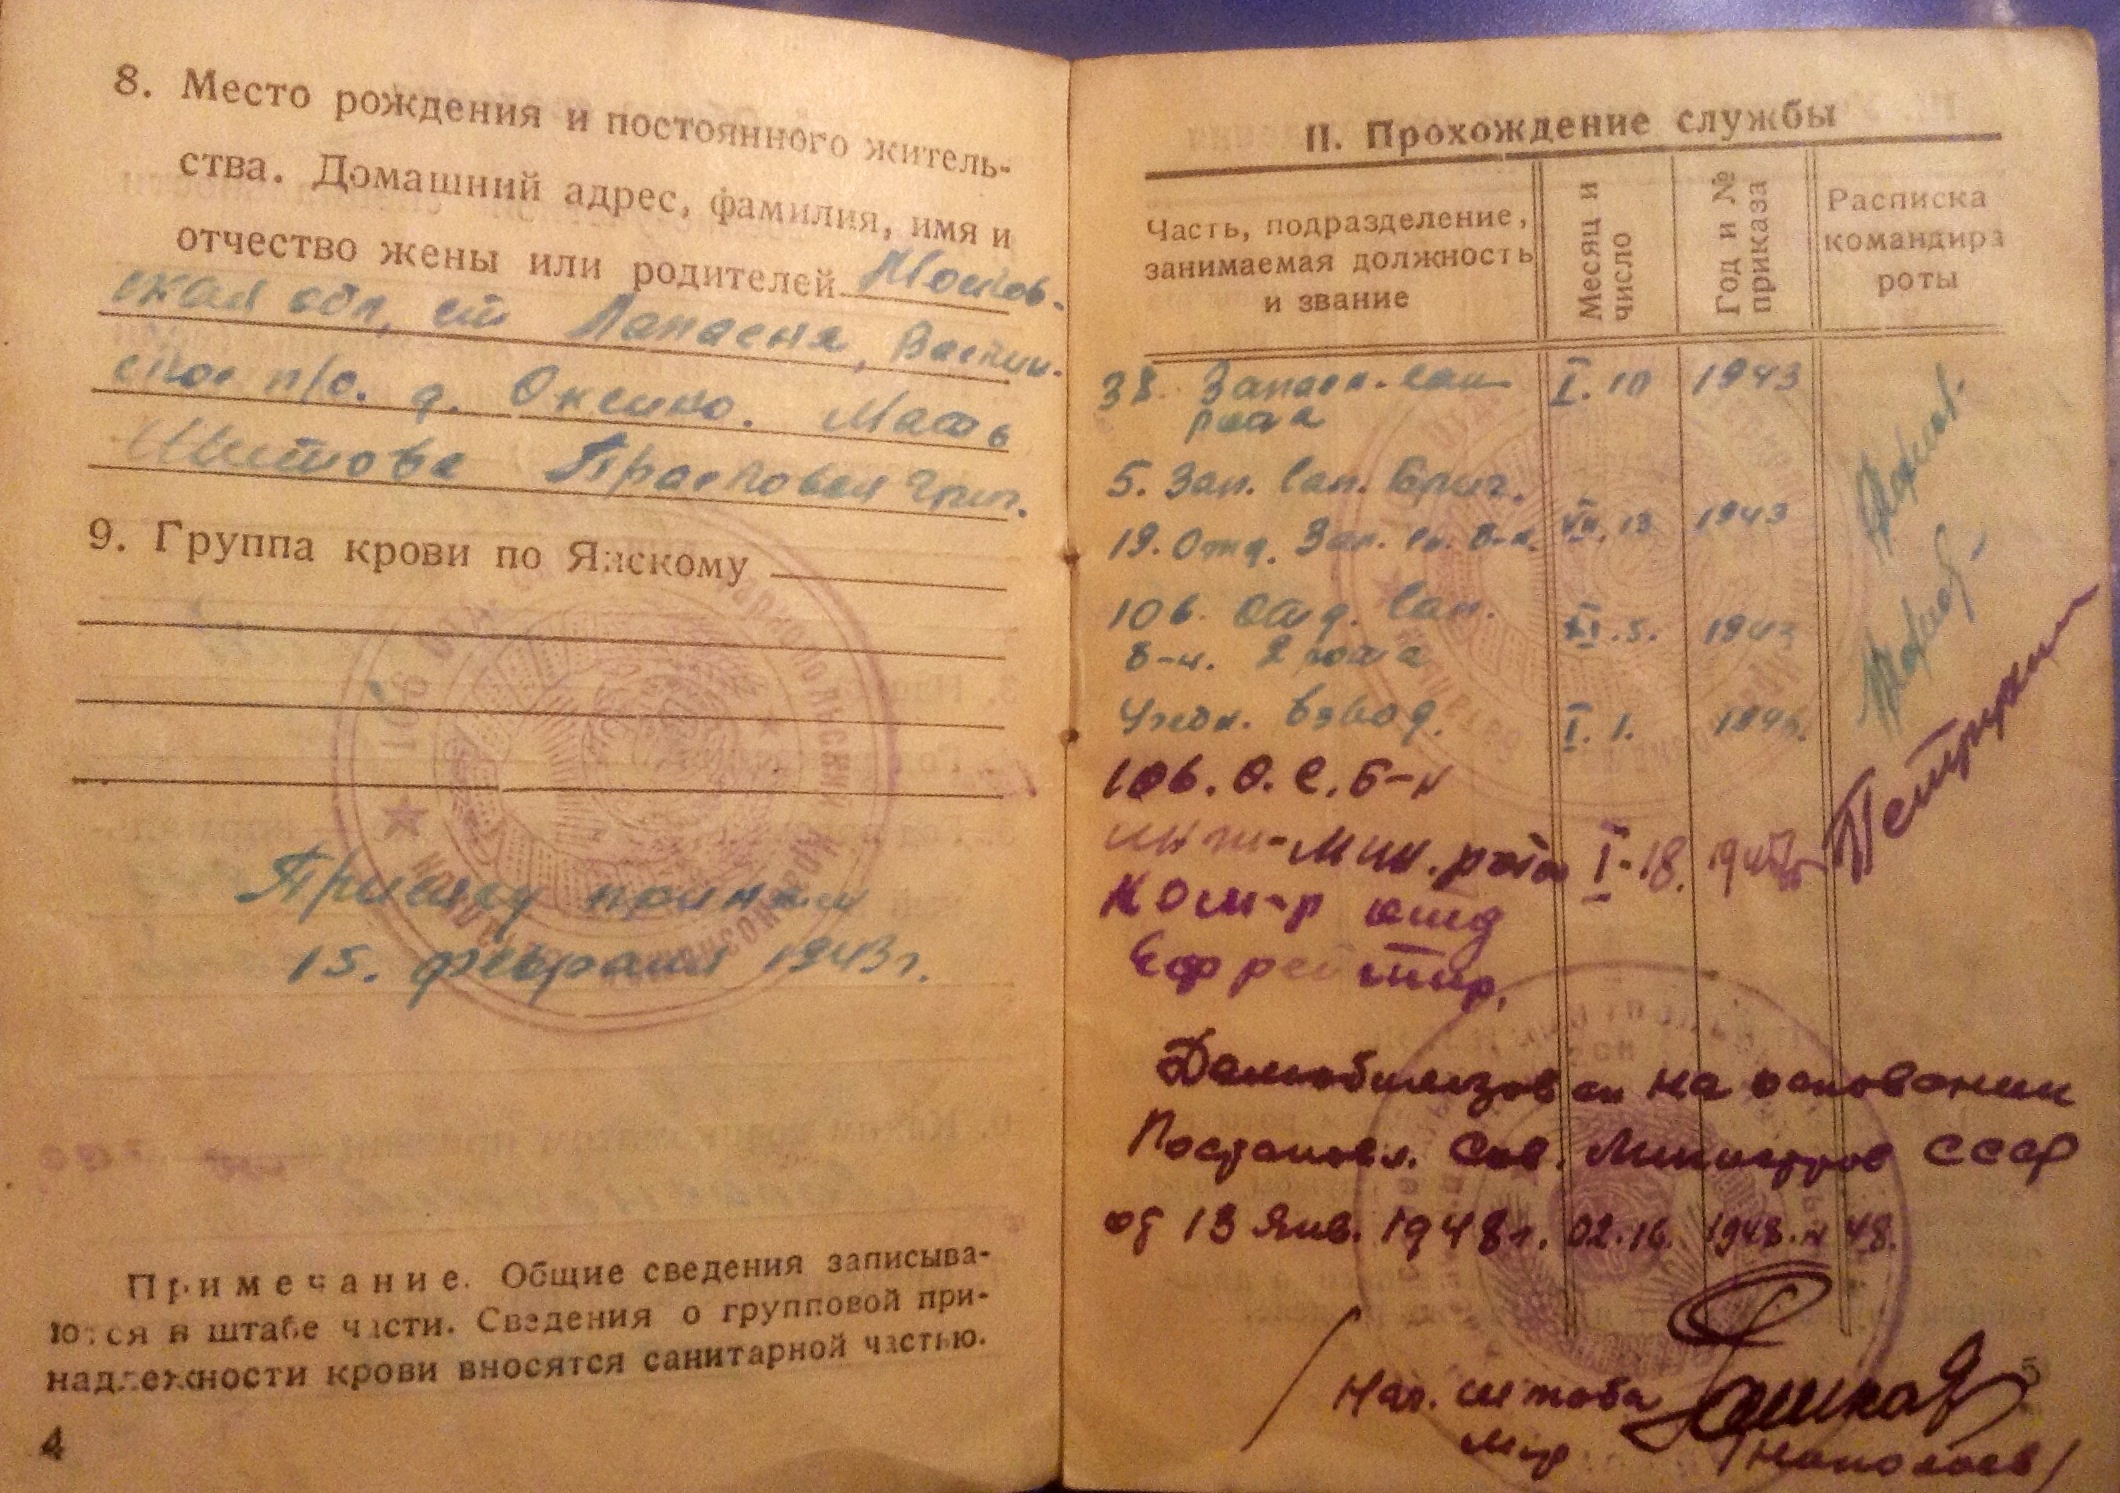 8. Место рождения и постоянного житель-
ства. Домашний адрес, фамилия, имя и
отчество жены или родителей Москов-
ская обл, ст Лопасня, 
п/о. д. Оксино. Мать
Прасковья Григ.
9. Группа крови по Янскому
Присягу принял
15. февраля 1943 г.
Примечание. Общие сведения записыва-
ются в штабе части. Сведения о групповой при-
надлежности крови вносятся санитарной частью.
4
II. Прохождение службы
Часть, подразделение,
занимаемая должность
и звание
Месяц и
число
Год и №
приказа
Расписка
командира
роты
38 Запасн. сап I. 10 1943
рота
5. Зап. Сап. Бриг.
19. Отд. Зап. Сп. Б-н. VII. 13 1943
106. Отд. Сап. XI. 5. 1943
Б-н. 2 рота
Учебн. взвод. I. 1.
106. О. С. Б-н
инж-мин. рота I-18.
Ком-р отд
Ефрейтор.
Демобилизован на основании
Постановл. Сов. Министров СССР
от 13 Янв. 1948 г. 02.16. 1948. № 48.
5
Нач. штаба
М-р